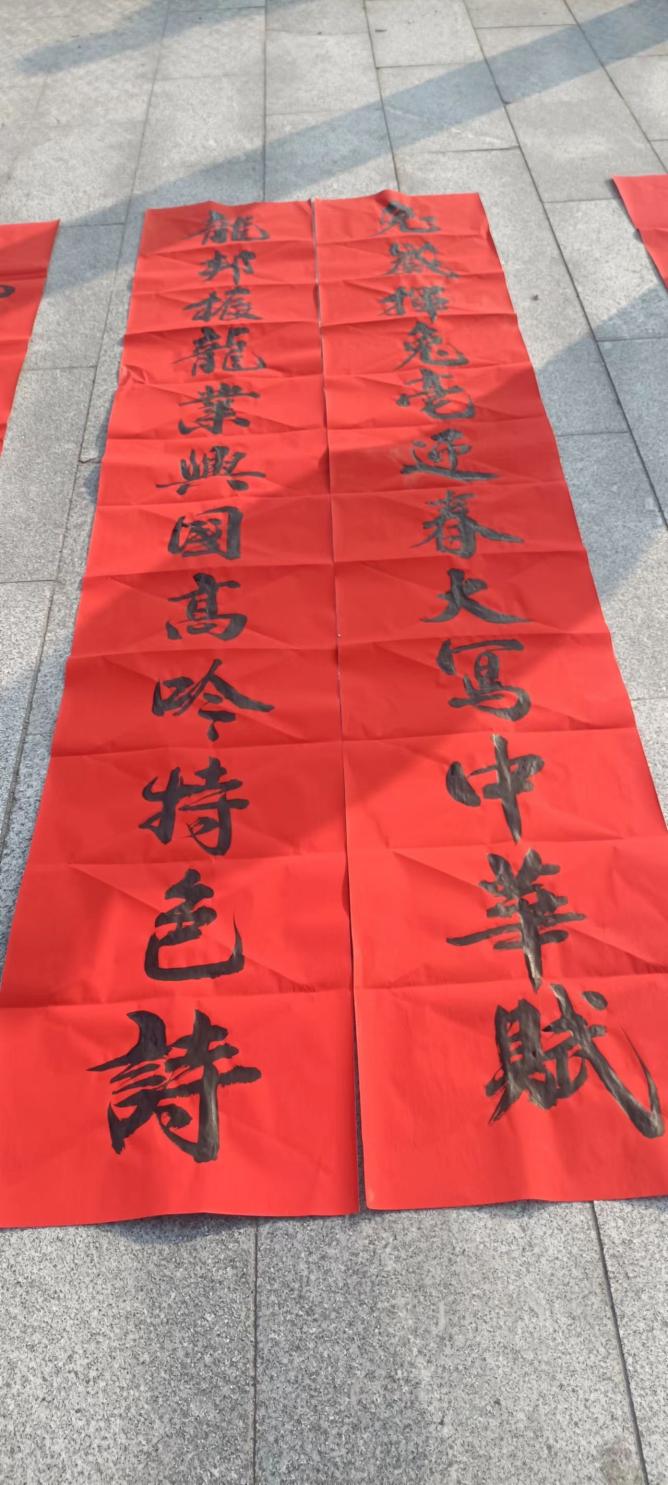 兔歲揮兔毫迎春大寫中華賦
龍邦振龍業興國高吟特色詩